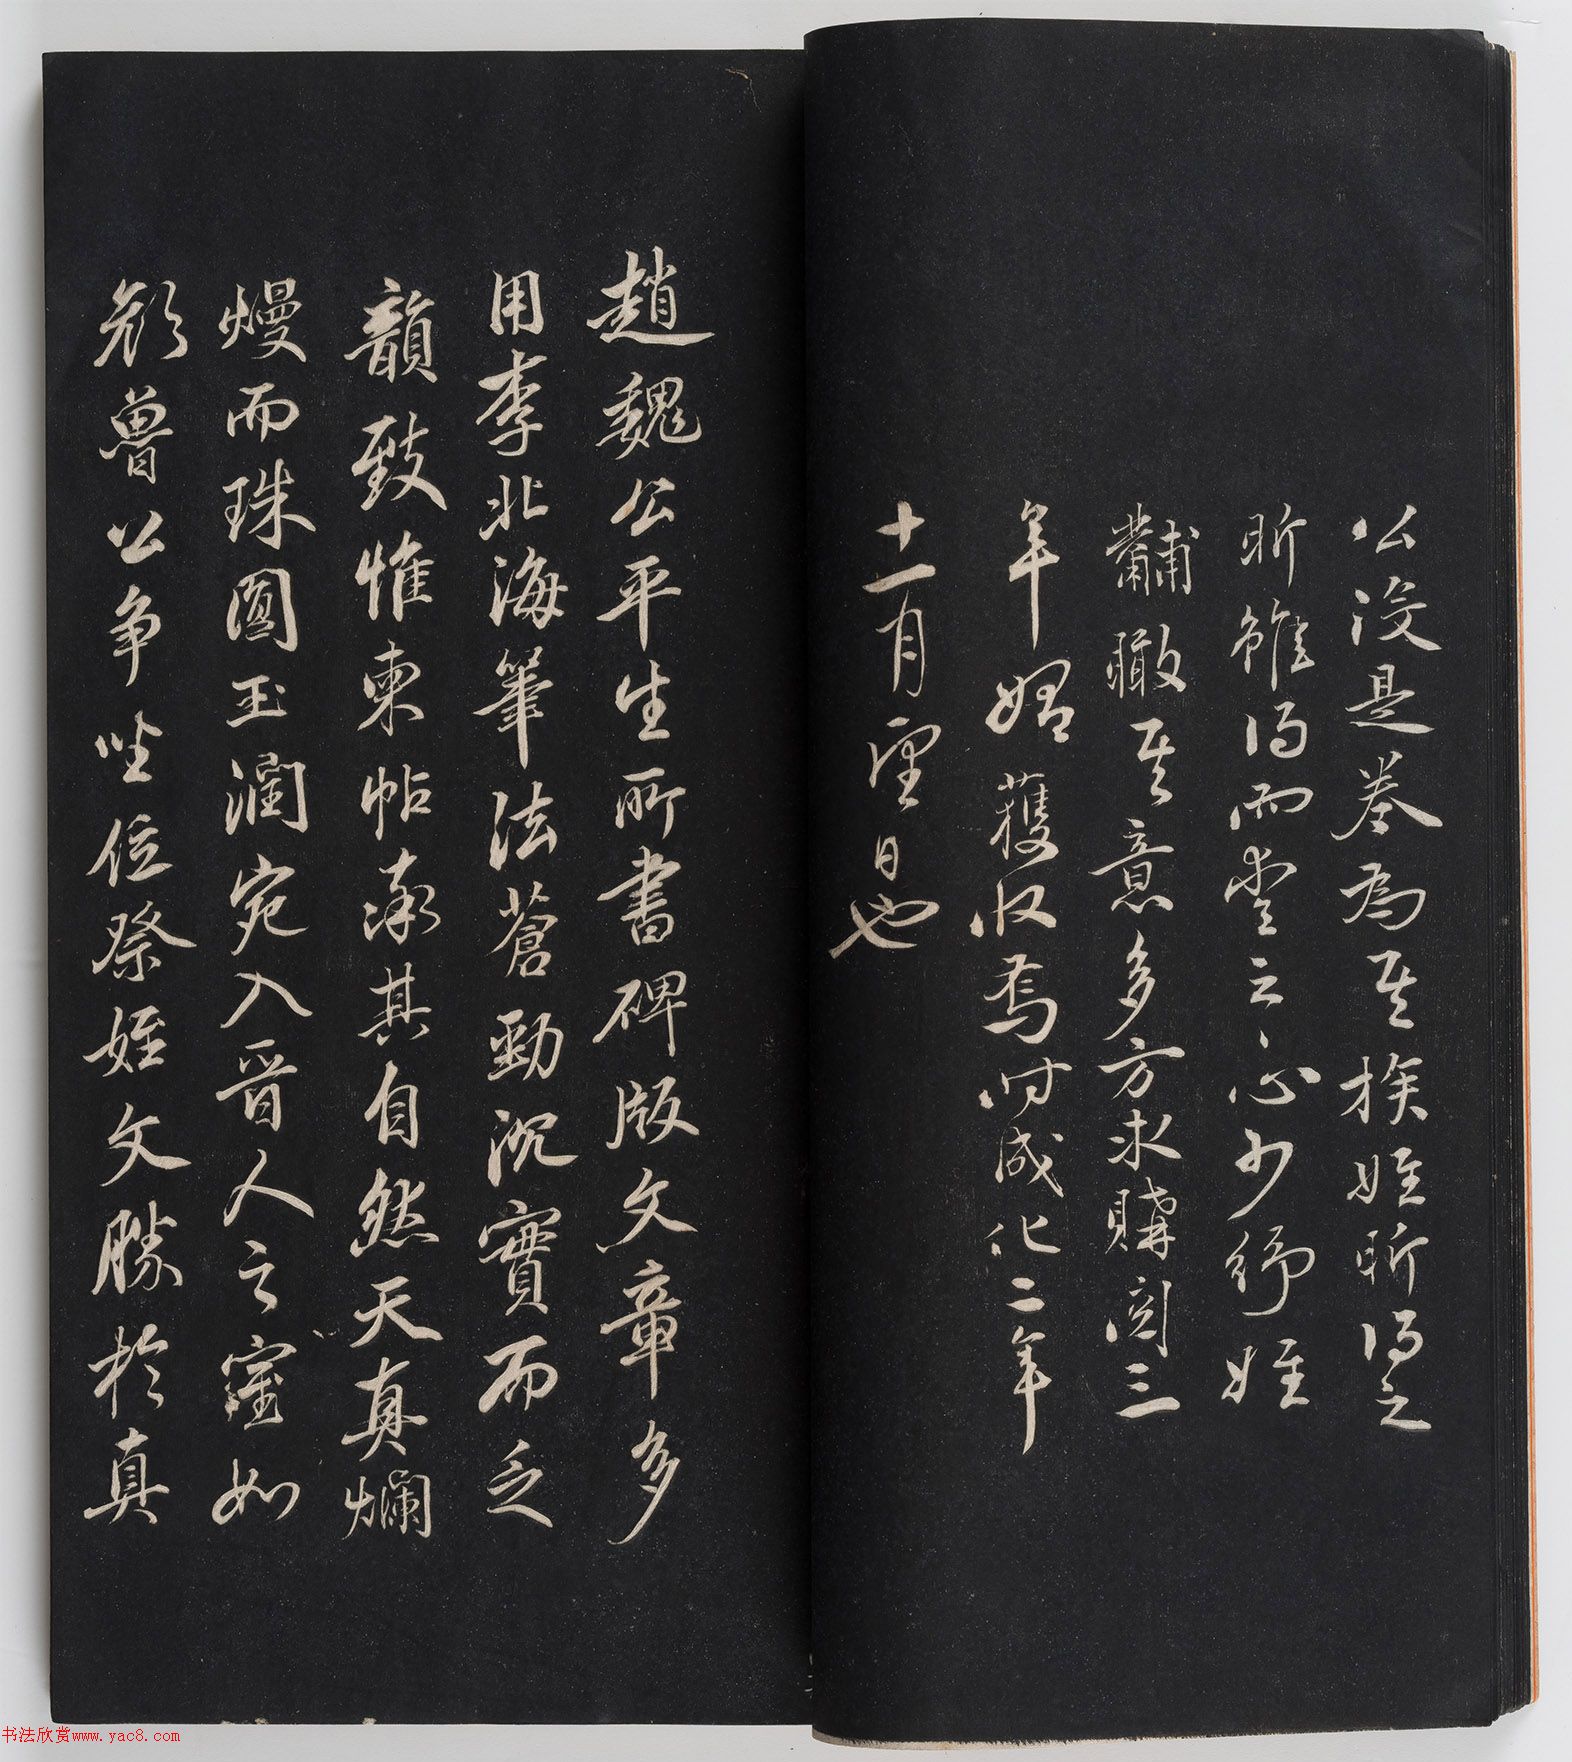 公没是卷為其族姪昕得之
昕雖得而愛之之心少紓姪
黼瞰其意多方求購閱三
年始獲收焉时成化二年
十一月望日也
趙魏公平生所書碑版文章多
用李北海筆法蒼勁沉實而乏
韻致惟柬帖承其自然天真爛
熳而珠圓玉潤宛入晉人之室如
顏魯公争坐位祭姪文勝於真
书法欣赏www.yac8.com